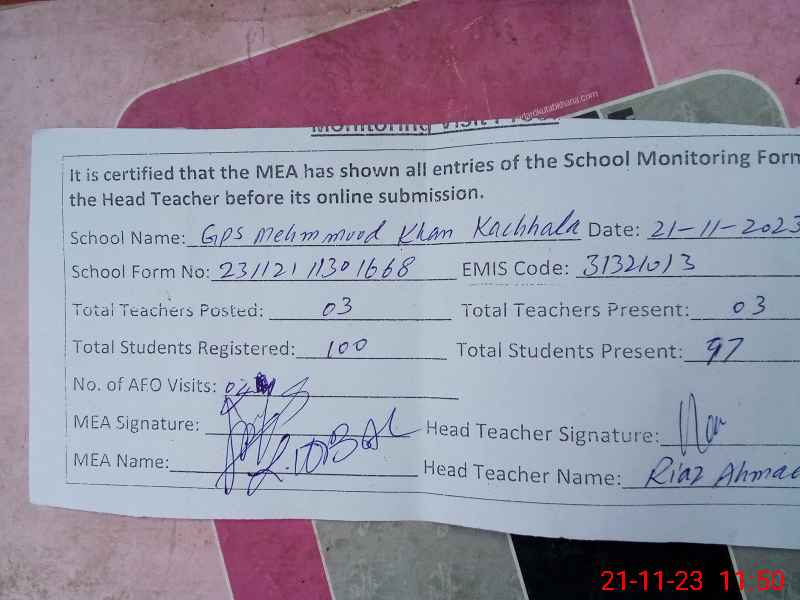 idarokutabkhana.com
Monitoring Visit
It is certified that the MEA has shown all entries of the School Monitoring Form
the Head Teacher before its online submission.
School Name: GPS Mehmmood Khan Kachhala Date: 21-11-2023
School Form No: 231121 11301668 EMIS Code: 31321013
Total Teachers Posted: 03 Total Teachers Present: 03
Total Students Registered: 100 Total Students Present: 97
No. of AFO Visits:
MEA Signature: Head Teacher Signature:
MEA Name: Head Teacher Name: Riaz Ahmad
21-11-23 11:50